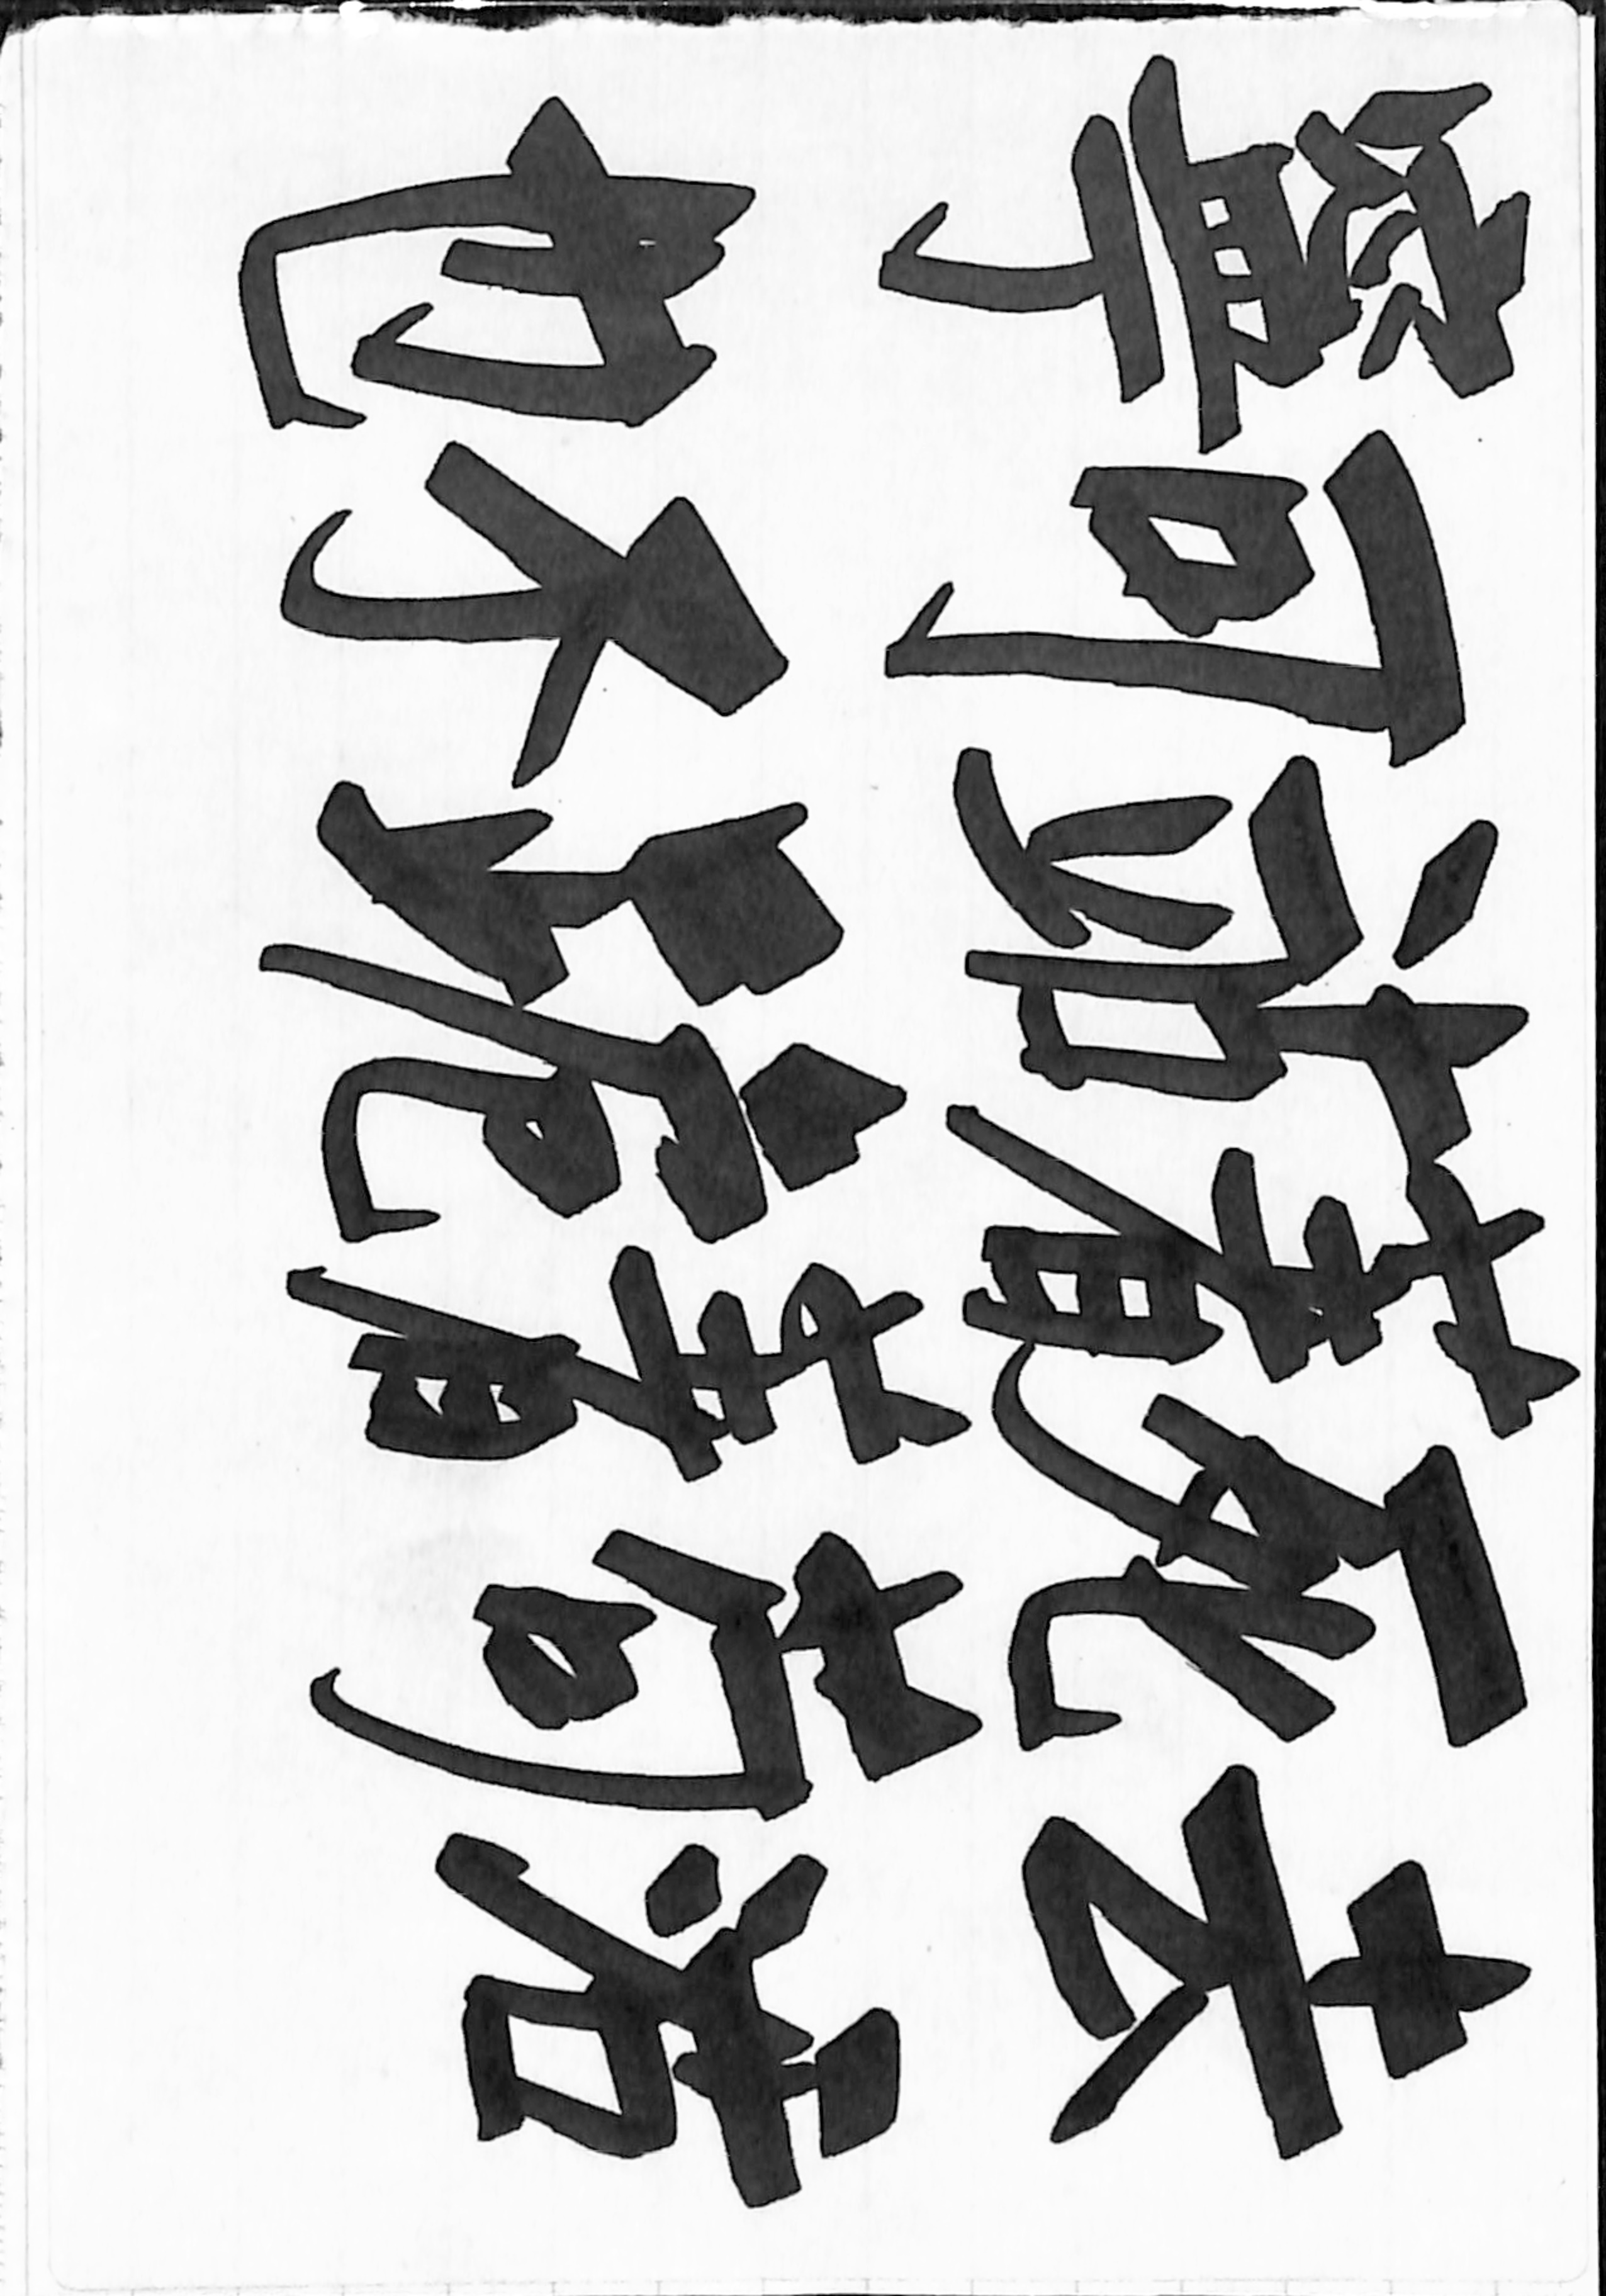 寧可站着死去
也不跪着苟活